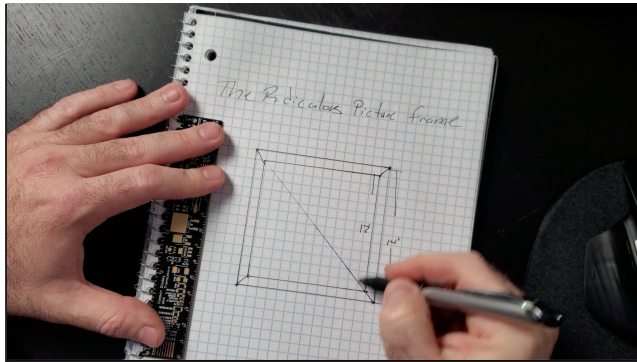 The Ridiculous Picture Frame
12'
14"